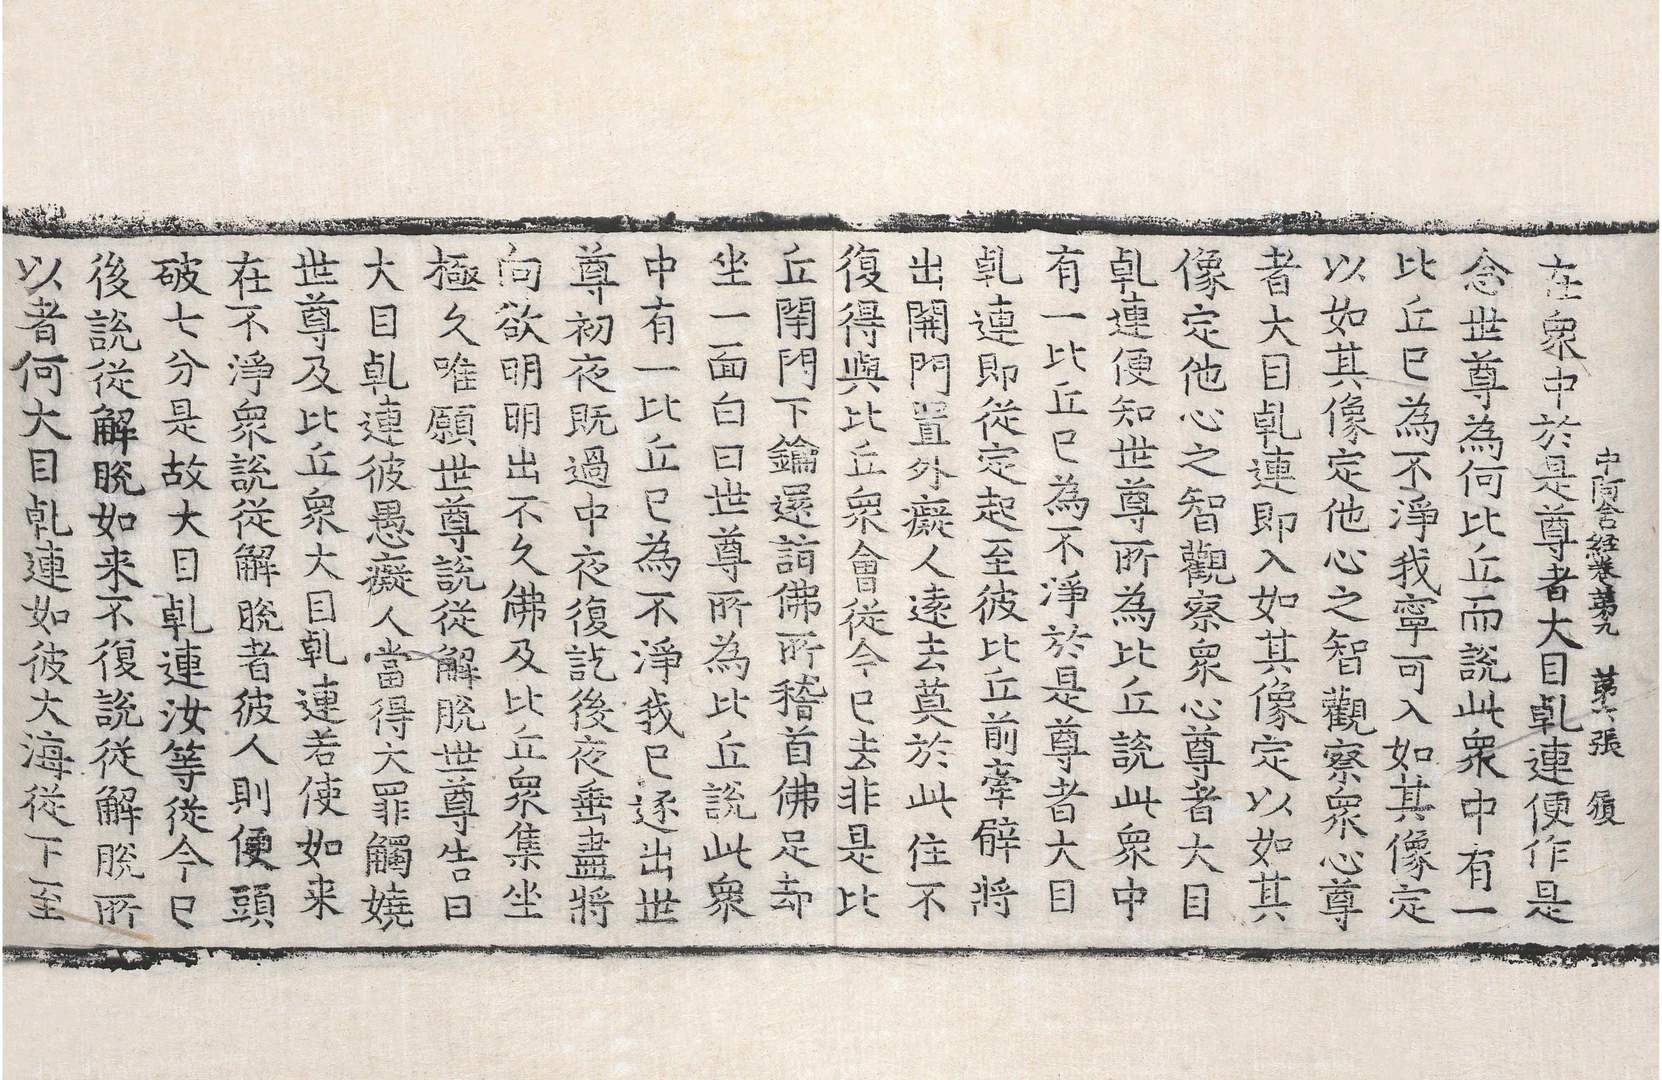 中阿含経卷苐九　苐六張　履
在衆中於是尊者大目乹連便作是
念世尊為何比丘而說此衆中有一
比丘已為不淨我寧可入如其像定
以如其像定他心之智觀察衆心尊
者大目乹連即入如其像定以如其
像定他心之智觀察衆心尊者大目
乹連便知世尊所為比丘說此衆中
有一比丘已為不淨於是尊者大目
乹連即從定起至彼比丘前牽臂將
出開門置外癡人遠去莫於此住不
復得與比丘衆會從今已去非是比
丘閇門下鑰還詣佛所稽首佛足却
坐一面白曰世尊所為比丘說此衆
中有一比丘已為不淨我已逐出世
尊初夜既過中夜復訖後夜垂盡將
向欲明明出不久佛及比丘衆集坐
極久唯願世尊說從解脫世尊告曰
大目乹連彼愚癡人當得大罪觸嬈
世尊及比丘衆大目乹連若使如来
在不淨衆說從解脫者彼人則便頭
破七分是故大目乹連汝等從今已
後說從解脫如来不復說從解脫所
以者何大目乹連如彼大海從下至